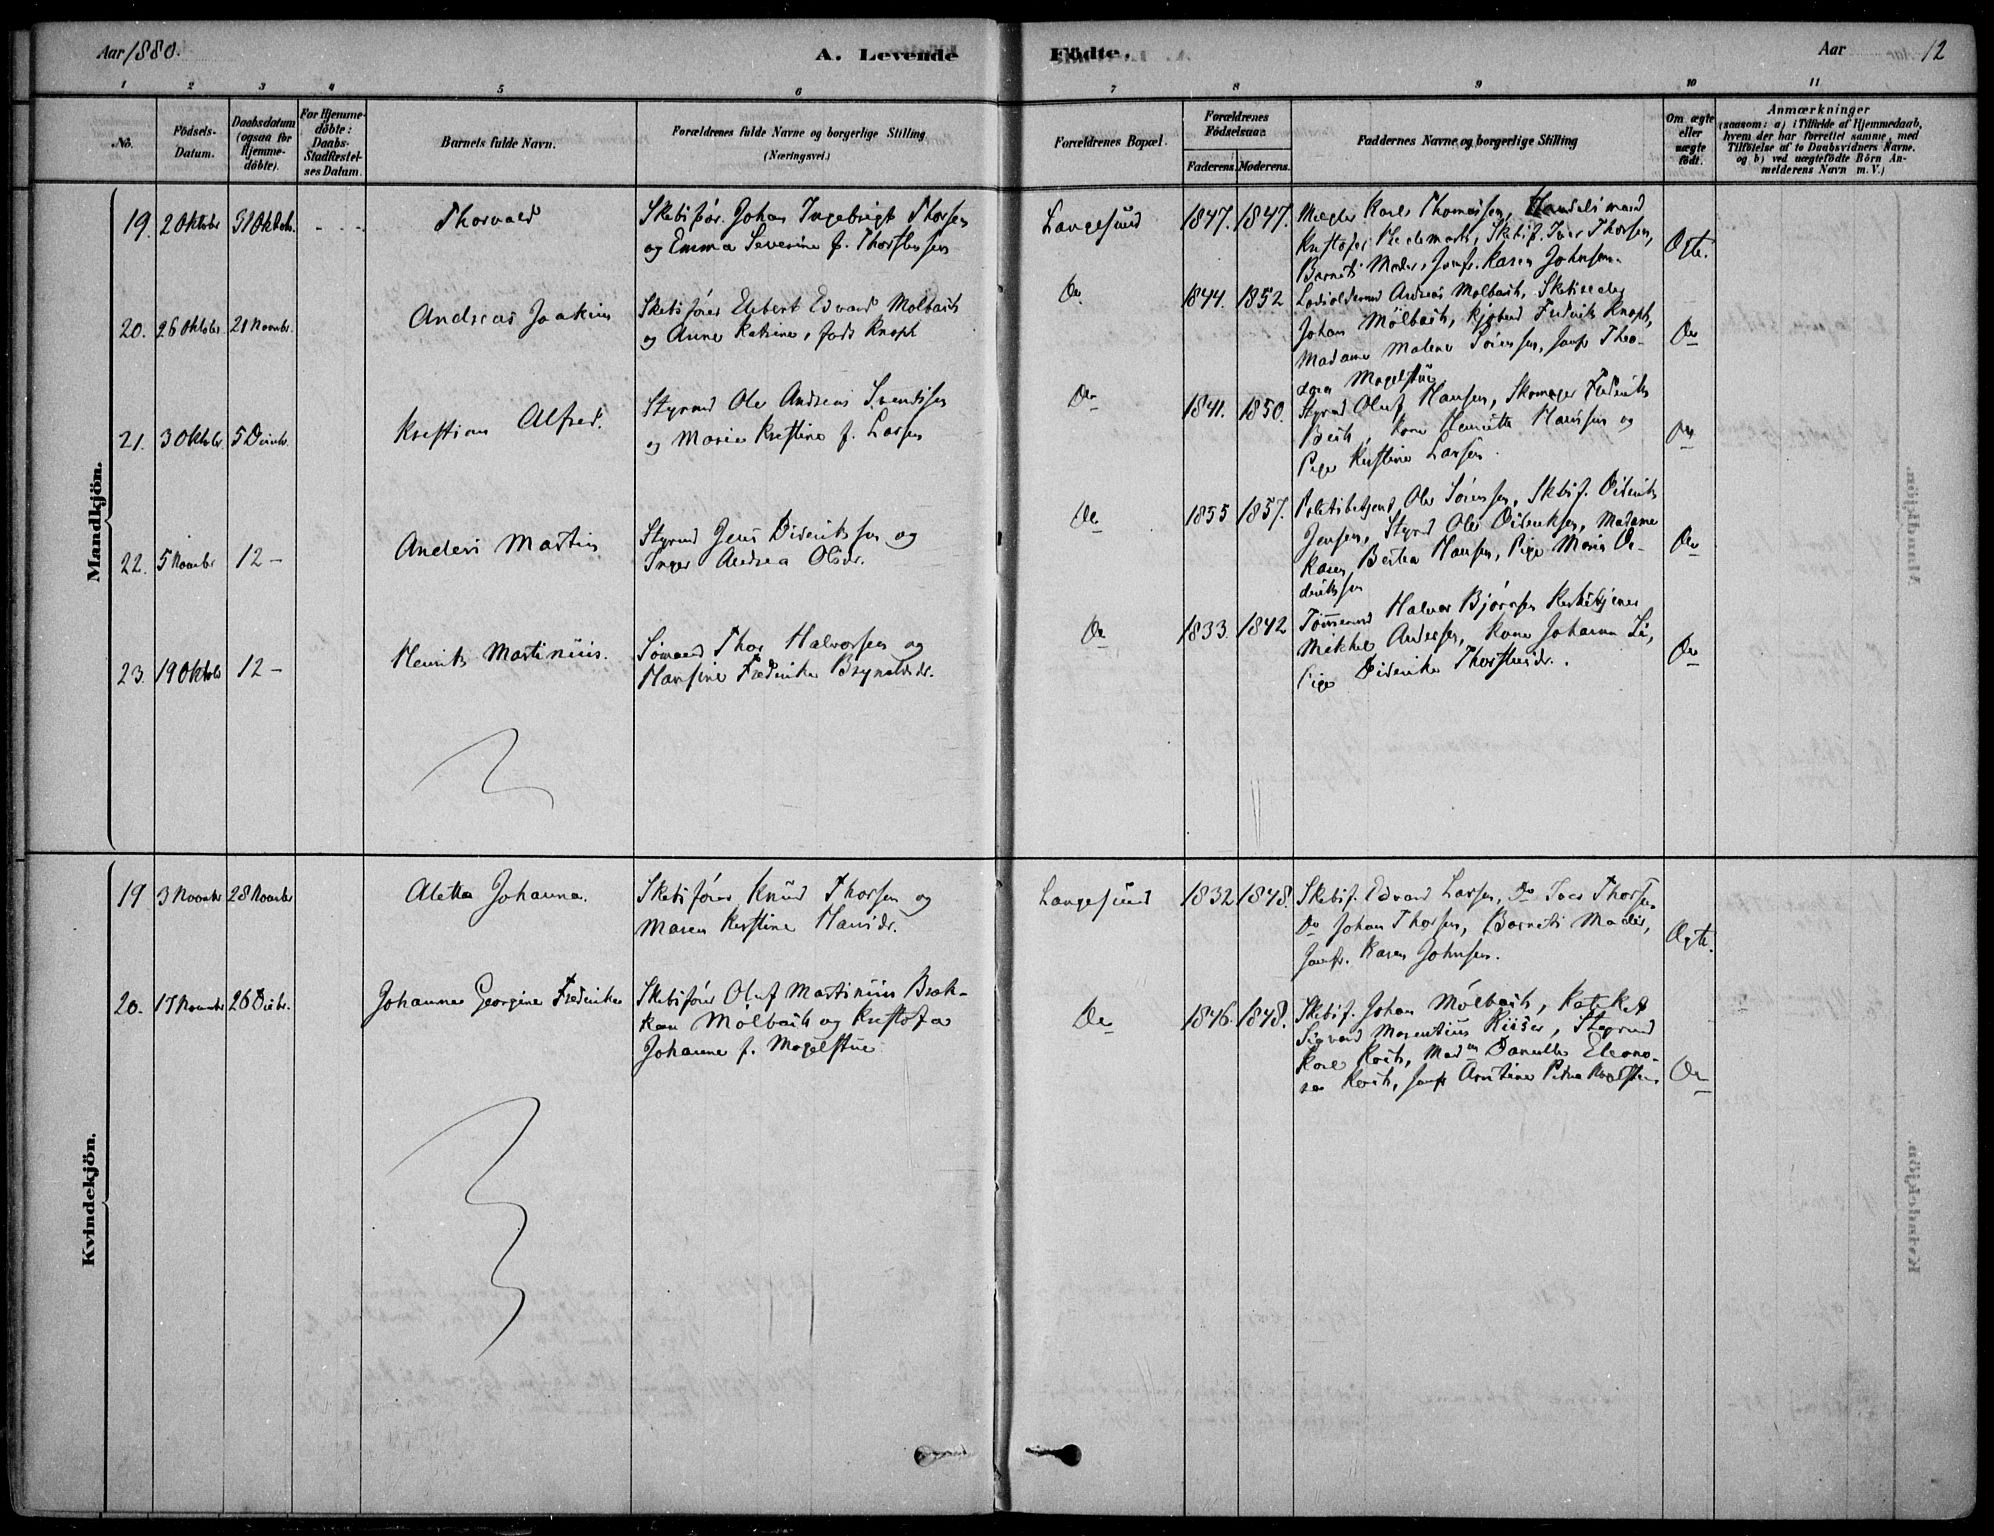 Aar 1880.
A. Levende
Födte.
Aar
12
1 2 3 4 5 6 7 8 9 10 11
No.
Födsels-
Datum.
Daabsdatum
(ogsaa for
Hjemme-
döbte).
For Hjemme-
döbte:
Daabs-
Stadfæstel-
ses Datum.
Barnets fulde Navn.
Forældrenes fulde Navne og borgerlige Stilling
(Næringsvei.)
Forældrenes Bopæl.
Forældrenes
Födselsaar.
Faderens. Moderens.
Faddernes Navne og borgerlige Stilling
Om ægte
eller
uægte
födt.
Anmærkninger
(saasom: a) i Tilfælde af Hjemmedaab,
hvem der har forrettet samme, med
Tilföielse af to Daabsvidners Navne.
og b) ved uægtefödte Börn An-
melderens Navn m. V.)
Mandkjön.
19. 2 Oktober 31 Oktob.
Thorvald
Skibsfør. Johan Ingebrigt Thorsen
og Emma Severine f. Thorstensen
Langesund
1847. 1847.
Mægler Karl Thomassen, Handelsmand
Kristofer Hedemark, Skibsf. Iver Thorsen,
Barnets Moder, Jomfr. Karen Johnsen.
Ægte.
20. 26 Oktober 21 Novembr.
Andreas Joakim
Skibsfører Elebert Edvard Mølbach
og Anne Katrine, født Knoph
Do
1844. 1852
Lodsoldermd Andreas Mølbach, Skibsreder
Johan Mølbach, Kjøbmd Fredrik Knoph,
Madame Malene Sørensen, Jomfr Theo-
dora Mogelstue
Do
21. 3 Oktober 5 Decembr.
Kristian Alfred.
Styrmd Ole Andreas Svendsen
og Maria Kristine f. Larsen
Do
1841. 1850.
Styrmd Oluf Hansen, Skomager Fredrik
Berth, Kone Henriette Hansen og
Pige Kristine Larsen.
Do
22. 5 Novembr 12 –
Anders Martin
Styrmd Jens Dideriksen og
Inger Andrea Olsdr.
Do
1855 1857.
Politibetjent Ole Sørensen, Skibsf. Diderik
Jensen, Styrmd Ole Dideriksen, Madame
Karen Bertea Hansen, Pige Maria Di-
deriksen
Do
23. 19 Oktober 12 –
Henrik Martinius.
Sømand Thor Halvorsen og
Hansine Fredrikke Brynildsdr.
Do
1833. 1842
Tømmermd Halvor Bjørnsen Kirketjener
Mikkel Andersen, Kone Johanne Li,
Pige Diderikke Thorstensdr.
Do
Kvindekjön.
19 3 Novembr 28 Novembr
Aletta Johanna.
Skibsfører Knud Thorsen og
Maren Kirstine Hansdr.
Langesund
1832 1848.
Skibsf. Edvard Larsen, Do Iver Thorsen
Do Johan Thorsen, Barnets Moder,
Jomfr. Karen Johnsen.
Ægte.
20. 17 Novembr 26 Decbr.
Johanne Georgine Fredrikke
Skibsfører Oluf Martinius Brek-
kan Mølbach og Kristofa
Johanne f. Mogelstue
Do
1846. 1848.
Skibsf. Johan Mølbach, Kateket
Sigvard Morentius Riiser, Styrmd
Karl Koch, Madm Danielle Eleono-
ra Koch, Jomfr Arntine Petrea
Do